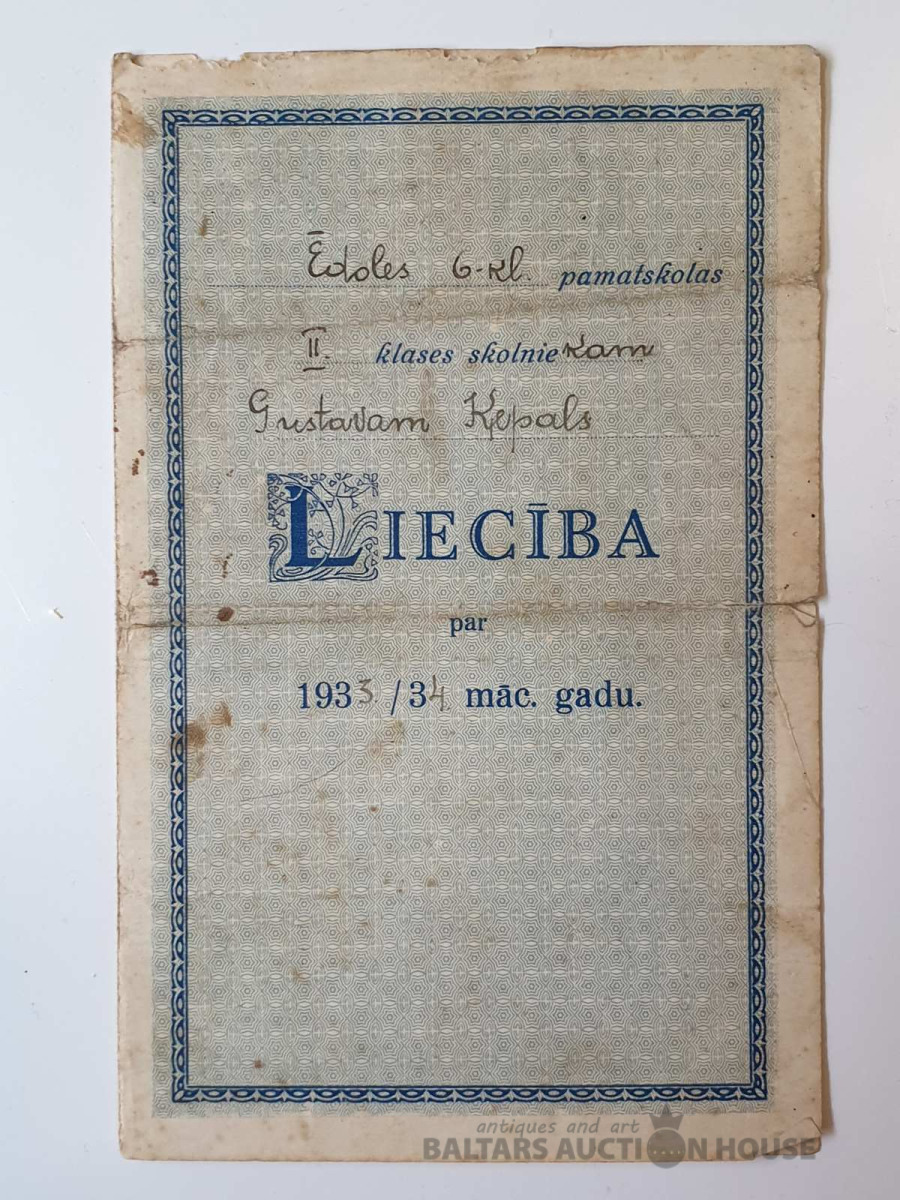 Ēdoles 6-kl. pamatskolas
II. klases skolniekam
Gustavam Ķepals
LIECĪBA
par
1933./34. māc. gadu.
antiques and art
BALTARS AUCTION HOUSE